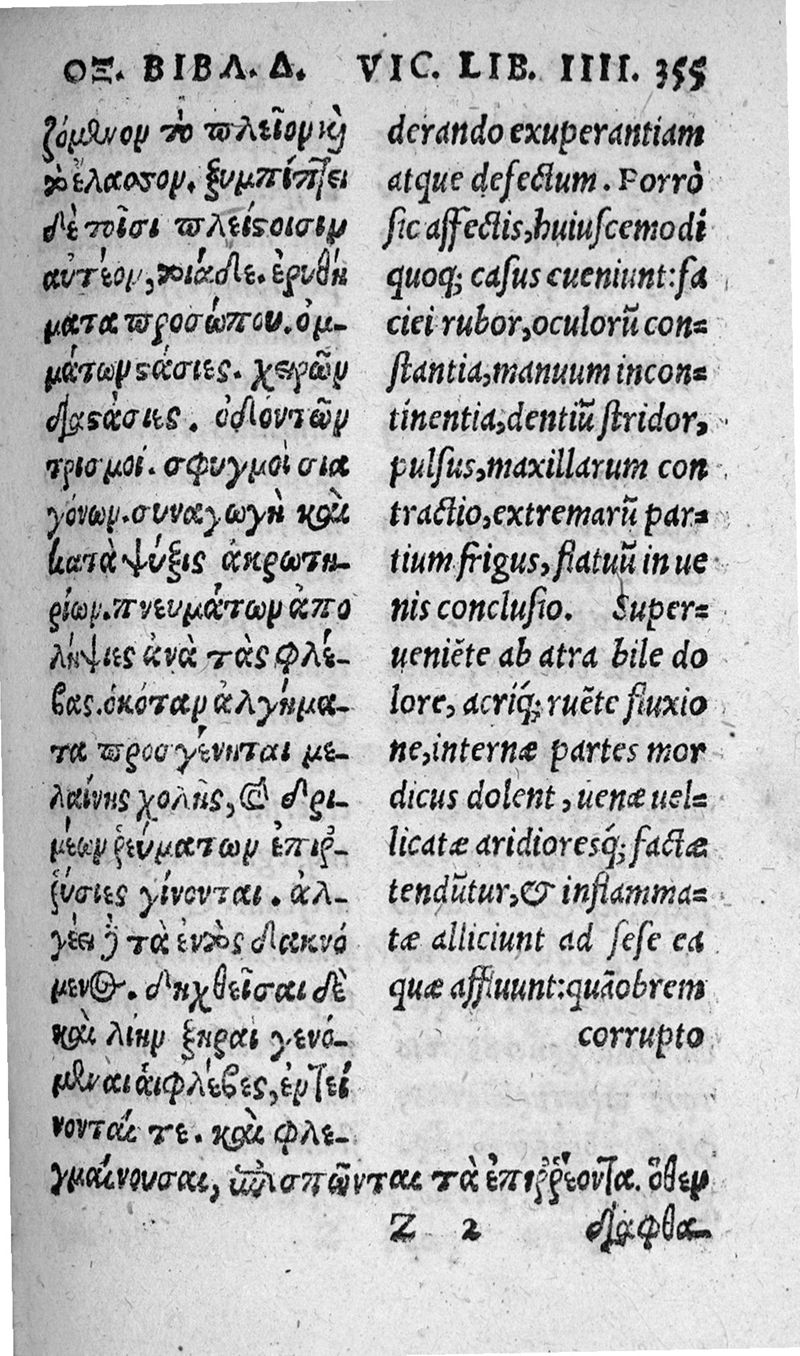 ΟΞ. ΒΙΒΛ. Δ. VIC. LIB. IIII. 355
ζόμενον τὸ πλεῖον καὶ
τὸ ἔλασσον. ξυμπίπτει
δὲ τοῖσι πλείςοισιν
αὐτέων, τοιάδε. ἐρυθή
ματα προσώπου. ὀμ-
μάτων ςάσιες. χειρῶν
διαςάσιες. ὀδόντων
τρισμοί. σφυγμοὶ σια
γόνων. συναγωγὴ καὶ
κατὰψύξις ἀκρωτη-
ρίων. πνευμάτων ἀπο
λήψιες ἀνὰ τὰς φλέ-
βας. ὁκόταν ἀλγήμα-
τα προσγένηται με-
λαίνης χολῆς, καὶ δρι-
μέων ῥευμάτων ἐπιῤ-
ῥύσιες γίνονται. ἀλ-
γέει δὲ τὰ ἐντὸς δακνό
μενος. δηχθεῖσαι δὲ
καὶ λίην ξηραὶ γενό-
μεναι αἱ φλέβες, ἐντεί
νονταί τε. καὶ φλε-
γμαίνουσαι, ἐπισπῶνται τὰ ἐπιῤῥέοντα. ὅθεν
derando exuperantiam
atque defectum. Porrò
sic affectis, huiuscemodi
quoq; casus eueniunt: fa
ciei rubor, oculorū con=
stantia, manuum incon=
tinentia, dentiū stridor,
pulsus, maxillarum con
tractio, extremarū par=
tium frigus, flatuū in ue
nis conclusio. Super=
ueniēte ab atra bile do
lore, acriq́; ruēte fluxio
ne, internæ partes mor
dicus dolent, uenæ uel=
licatæ aridioresq́; factæ
tendūtur, & inflamma=
tæ alliciunt ad sese ea
quæ affluunt: quāobrem
corrupto
Z 2 διαφθα-